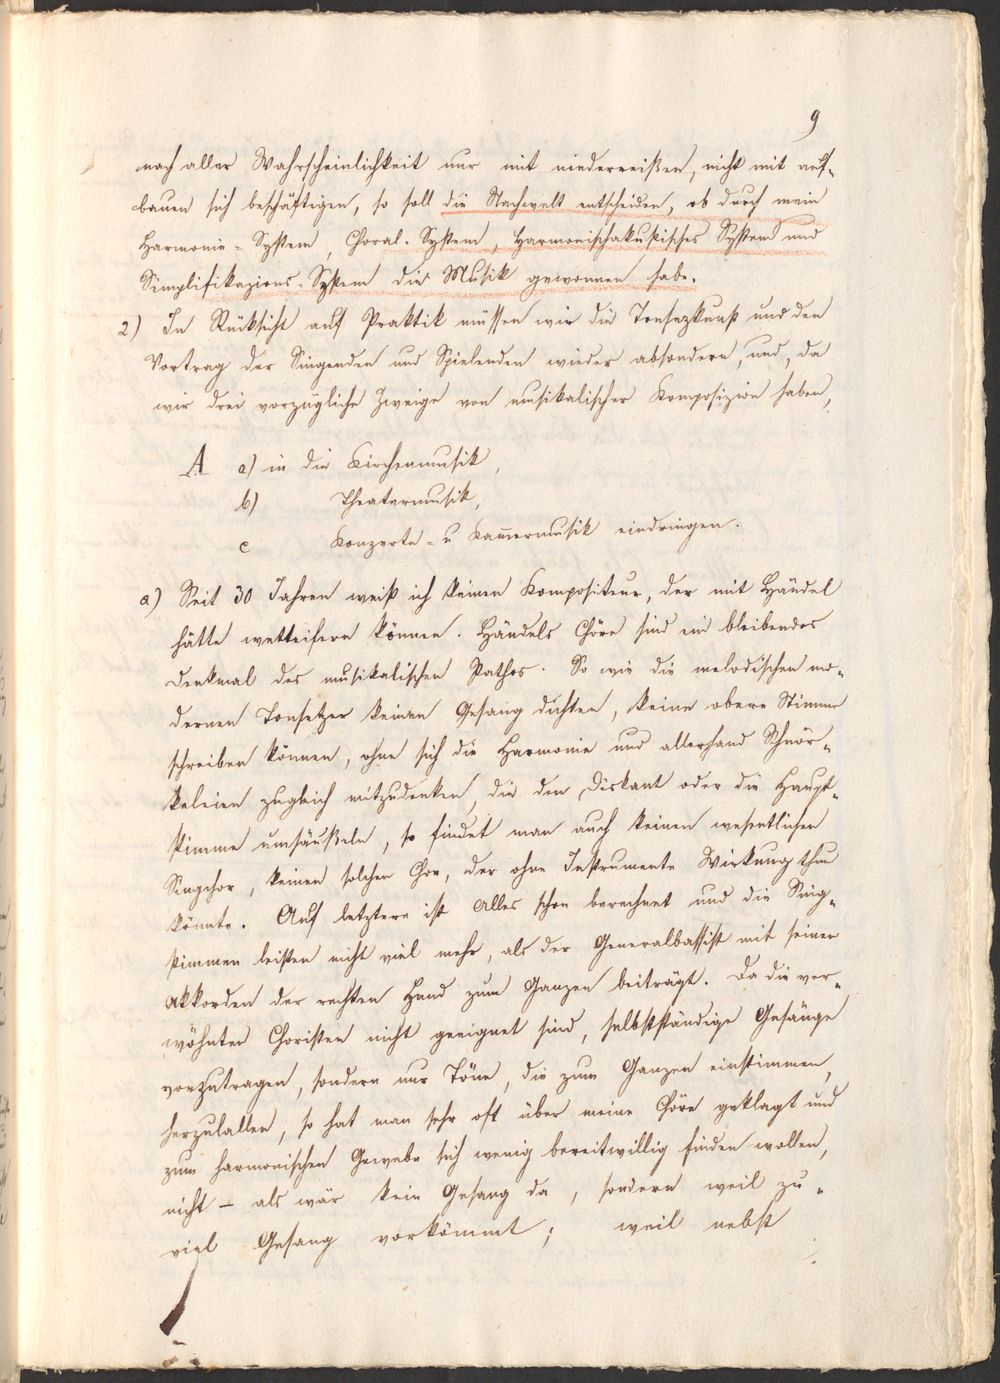 9
nach aller Wahrscheinlichkeit nur mit niederreißen, nicht mit auf-
bauen sich beschäftigen, so soll die Nachwelt entscheiden, ob durch mein
Harmonie-System, Choral-System, Harmonischakustisches System und
Simplifikazions-System die Musik gewonnen habe.
2) In Rücksicht auf Praktik müssen wir die Tonsezkunst und den
Vortrag der Singenden und Spielenden wieder absondern, und, da
wir drei vorzügliche Zweige von musikalischer Komposizion haben,
A a) in die Kirchenmusik,
b) Theatermusik,
c Konzerte- u Kam̅ermusik eindringen.
a) Seit 30 Jahren weiß ich keinen Kompositeur, der mit Händel
hätte wetteifern können. Händels Chöre sind ein bleibendes
Denkmal des musikalischen Pathos. So wie die melodischen mo-
dernen Tonsetzer keinen Gesang dichten, keine obere Stimme
schreiben können, ohne sich die Harmonie und allerhand Schnör-
keleien zugleich mitzudenken, die den Diskant oder die Haupt-
stimme umsäußeln, so findet man auch keinen wesentlichen
Singchor, keinen solchen Chor, der ohne Instrumente Wirkung thun
könnte. Auf letztere ist Alles schon berechnet und die Sing-
stimmen leisten nicht viel mehr, als der Generalbassist mit seinen
Akkorden der rechten Hand zum Ganzen beiträgt. Da die ver-
wöhnten Choristen nicht geeignet sind, selbstständige Gesänge
vorzutragen, sondern nur Töne, die zum Ganzen einstimmen,
herzulallen, so hat man sehr oft über meine Chöre geklagt und
zum harmonischen Gewebe sich wenig bereitwillig finden wollen,
nicht – als wär kein Gesang da, sondern weil zu-
viel Gesang vorkömmt; weil nebst